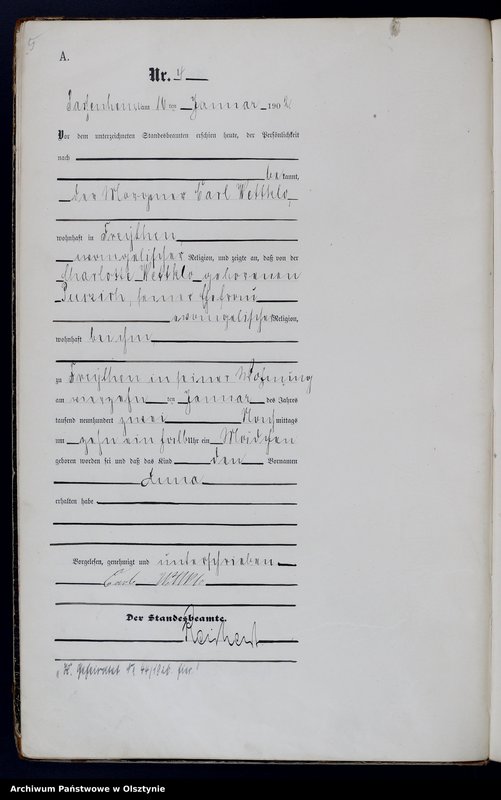 5
A.
Nr. 4
am 16 ten Januar 1902
Vor dem unterzeichneten Standesbeamten erschien heute, der Persönlichkeit
nach
be kannt,
der Carl
wohnhaft in Freythen
evangelischer Religion, und zeigte an, daß von der
Charlotte geborenen
seiner Ehefrau
evangelischer Religion,
wohnhaft bei ihm
zu Freythen in seiner Wohnung
am vierzehn ten Januar des Jahres
tausend neunhundert zwei Nach mittags
um zehn ein halb Uhr ein Mädchen
geboren worden sei und daß das Kind den Vornamen
Anna
erhalten habe
Vorgelesen, genehmigt und unterschrieben
Carl
Der Standesbeamte.
Archiwum Państwowe w Olsztynie